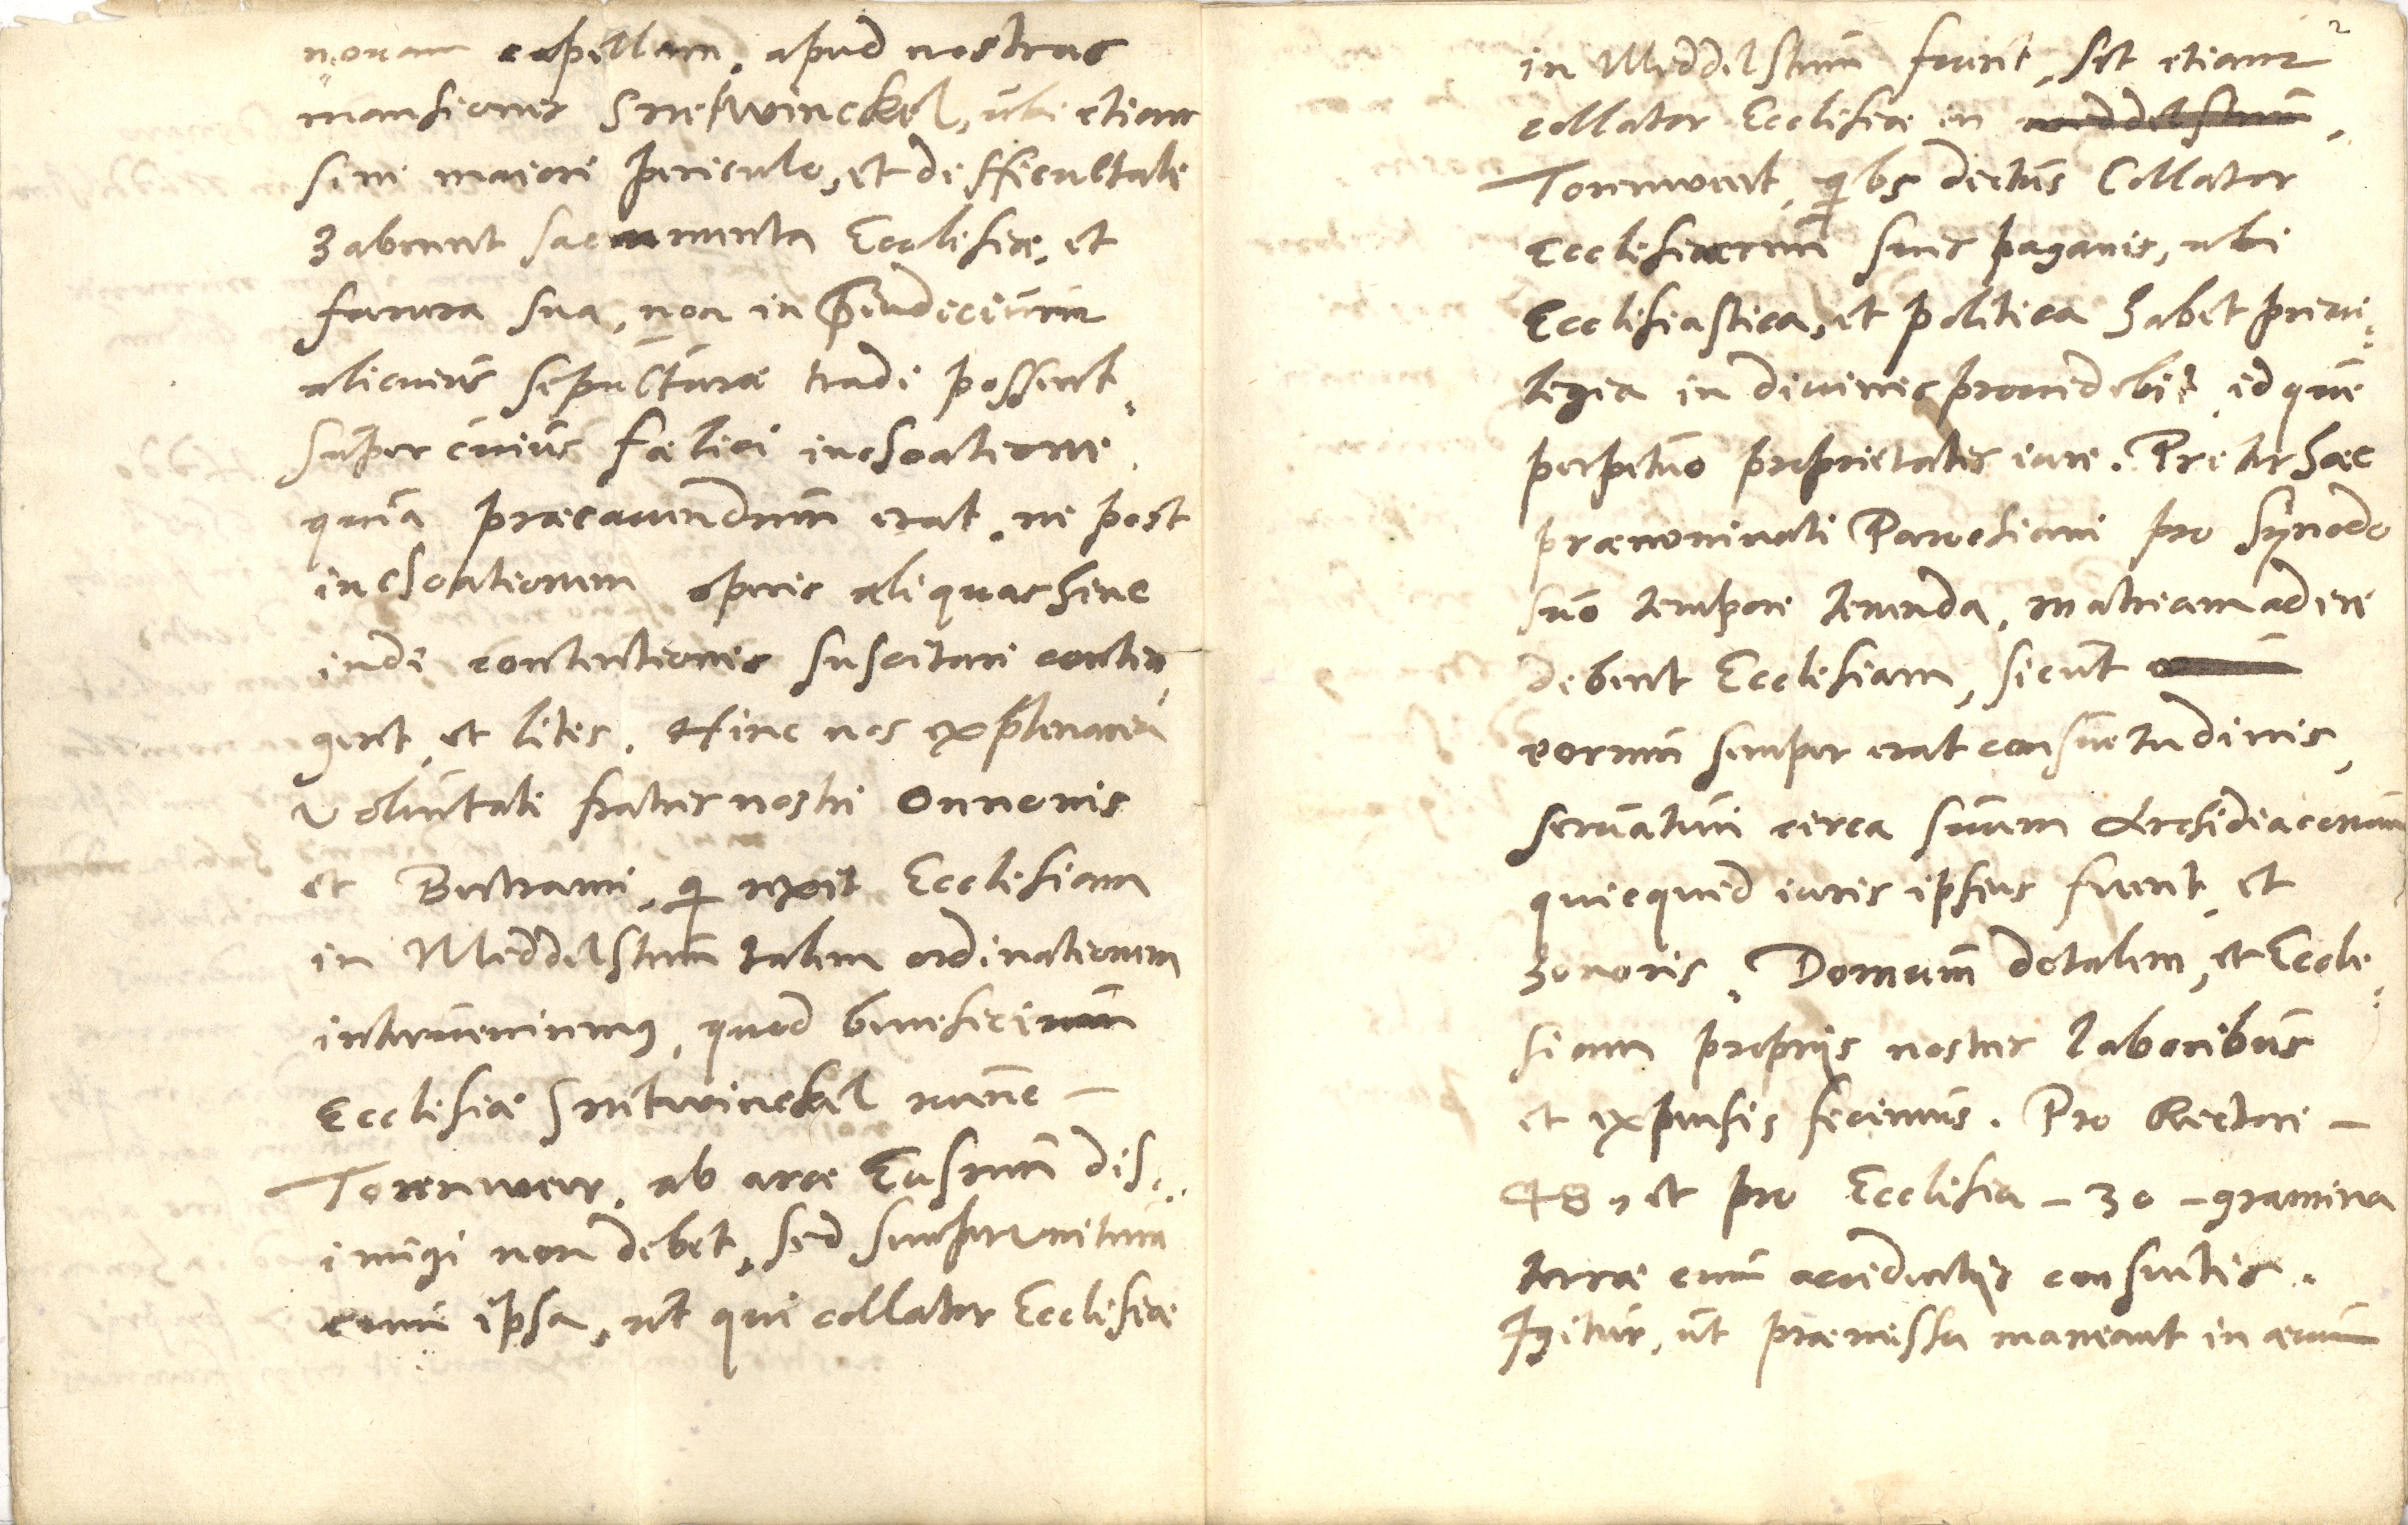 nouam capellam, apud nostras
mansiones Snelwinckel, ubi etiam
sine maiori periculo, et difficultate
habeant sacramenta Ecclesiæ, et
funera sua, non in præiudicium
alicuius sepulturæ tradi possent.
Super cuius fælici inchoatione,
quia præcauendum erat, ne post
inchoationem operis aliquas hinc
inde contentiones suscitari contin,
gent, et lites. Hinc nos ex plenaria
voluntate fratris nostri Onnonis
et Bertrami, qi rexit Ecclesiam
in Meddelstum talem ordinationem
interuenimus, quod beneficium
Ecclesiæ Snelwinckel nunc —
Torenwer, ab aræ Eusmum dis,,
iungi non debet, sed semper unitum
cum ipsa, ut qui collator Ecclesiæ
2
in Meddelstum fuerit, sit etiam
collator Ecclesiæ in meddelstum,
Torenwert, qibs dictus Collator
Ecclesiarum suis paganis, ubi
Ecclesiastica, et politica habet priui:
legia in diuinis prouidebit, idque
perpetuo proprietatis iure. Preter hæc
prænominati Paroesiani pro Synodo
suo tempore tenenda, matricem adire
debent Ecclesiam, sicut
eorum semper erat consuetudinis,
seruatum circa suum Archidiaconum
quicquid iuris ipsius fuerit, et
honoris. Domum dotalem, et Eccle:
siam proprijs nostris laboribus
et expensis fecimus. Pro Rectore —
48, et pro Ecclesia – 30 – gramina
terræ cum accidentijs consuetis.
Igitur, ut præmissa maneant in æuum